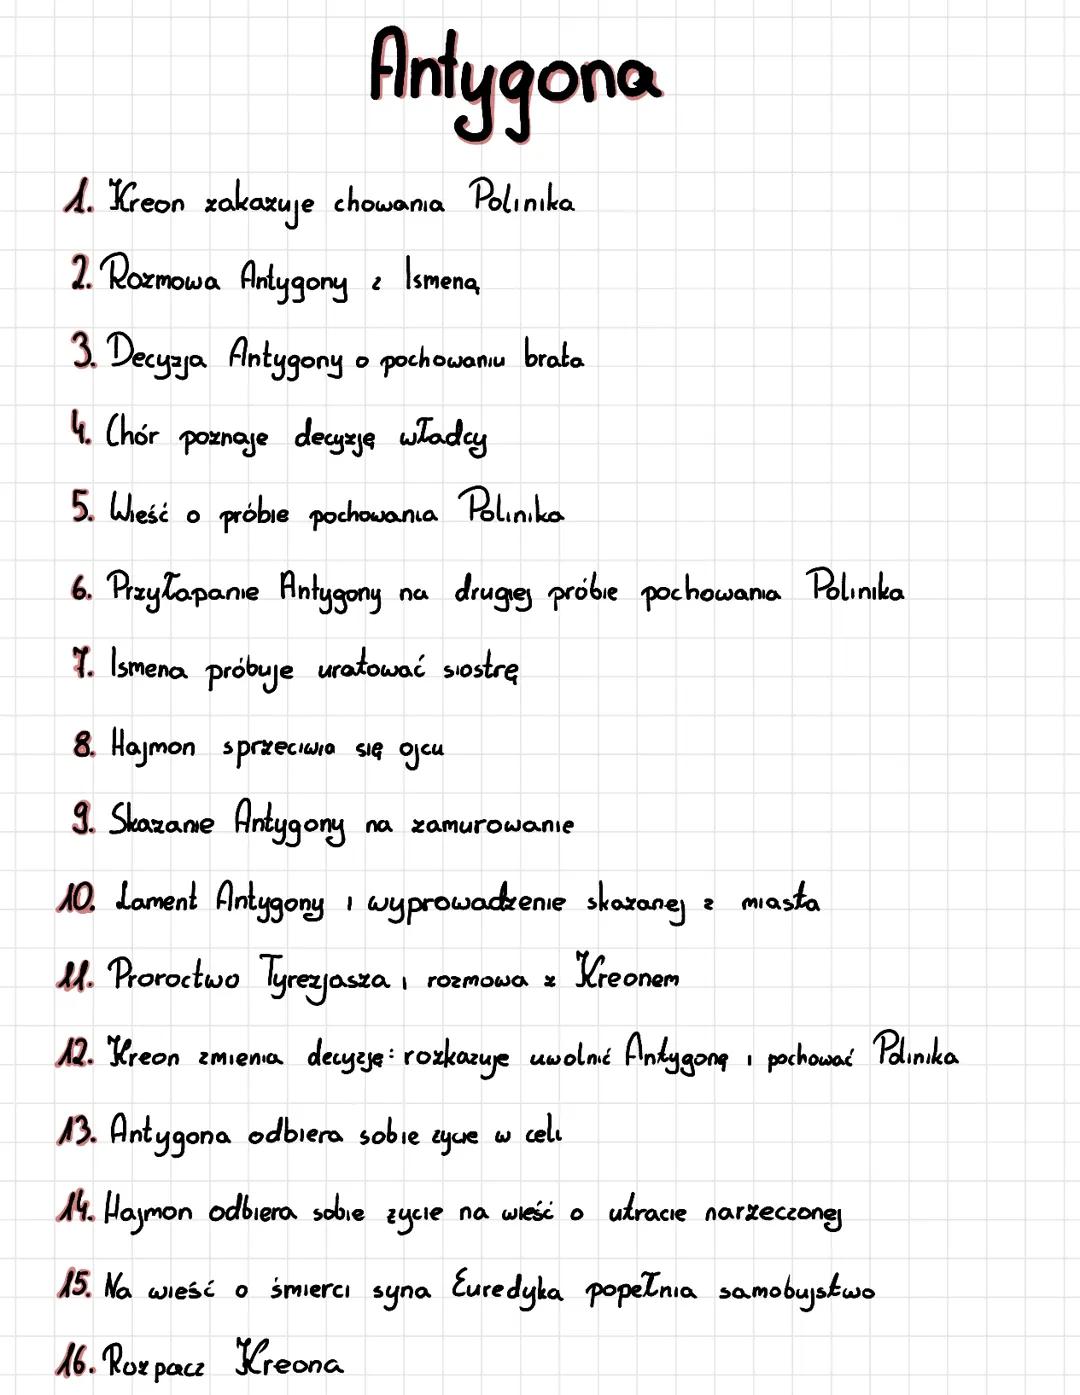 Antygona
1. Kreon zakazuje chowania Polinika
2. Rozmowa Antygony z Ismeną
3. Decyzja Antygony o pochowaniu brata
4. Chór poznaje decyzję władcy
5. Wieść o próbie pochowania Polinika
6. Przyłapanie Antygony na drugiej próbie pochowania Polinika
7. Ismena próbuje uratować siostrę
8. Hajmon sprzeciwia się ojcu
9. Skazanie Antygony na zamurowanie
10. Lament Antygony i wyprowadzenie skazanej z miasta
11. Proroctwo Tyrezjasza i rozmowa z Kreonem
12. Kreon zmienia decyzję: rozkazuje uwolnić Antygonę i pochować Polinika
13. Antygona odbiera sobie zycie w celi
14. Hajmon odbiera sobie zycie na wieść o utracie narzeczonej
15. Na wieść o śmierci syna Euredyka popełnia samobujstwo
16. Rozpacz Kreona